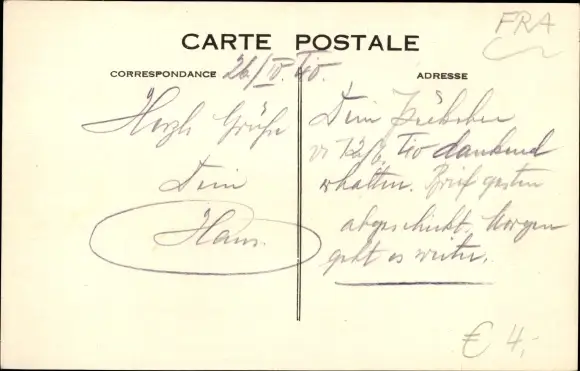 FRA
CARTE POSTALE
CORRESPONDANCE 26/IV. 40.
ADRESSE
Herzl. Grüße
Dein
Hans.
Dein
v. 12/6. 40 dankend
erhalten. Brief gestern
abgeschickt. Morgen
geht es weiter.
€ 4,-